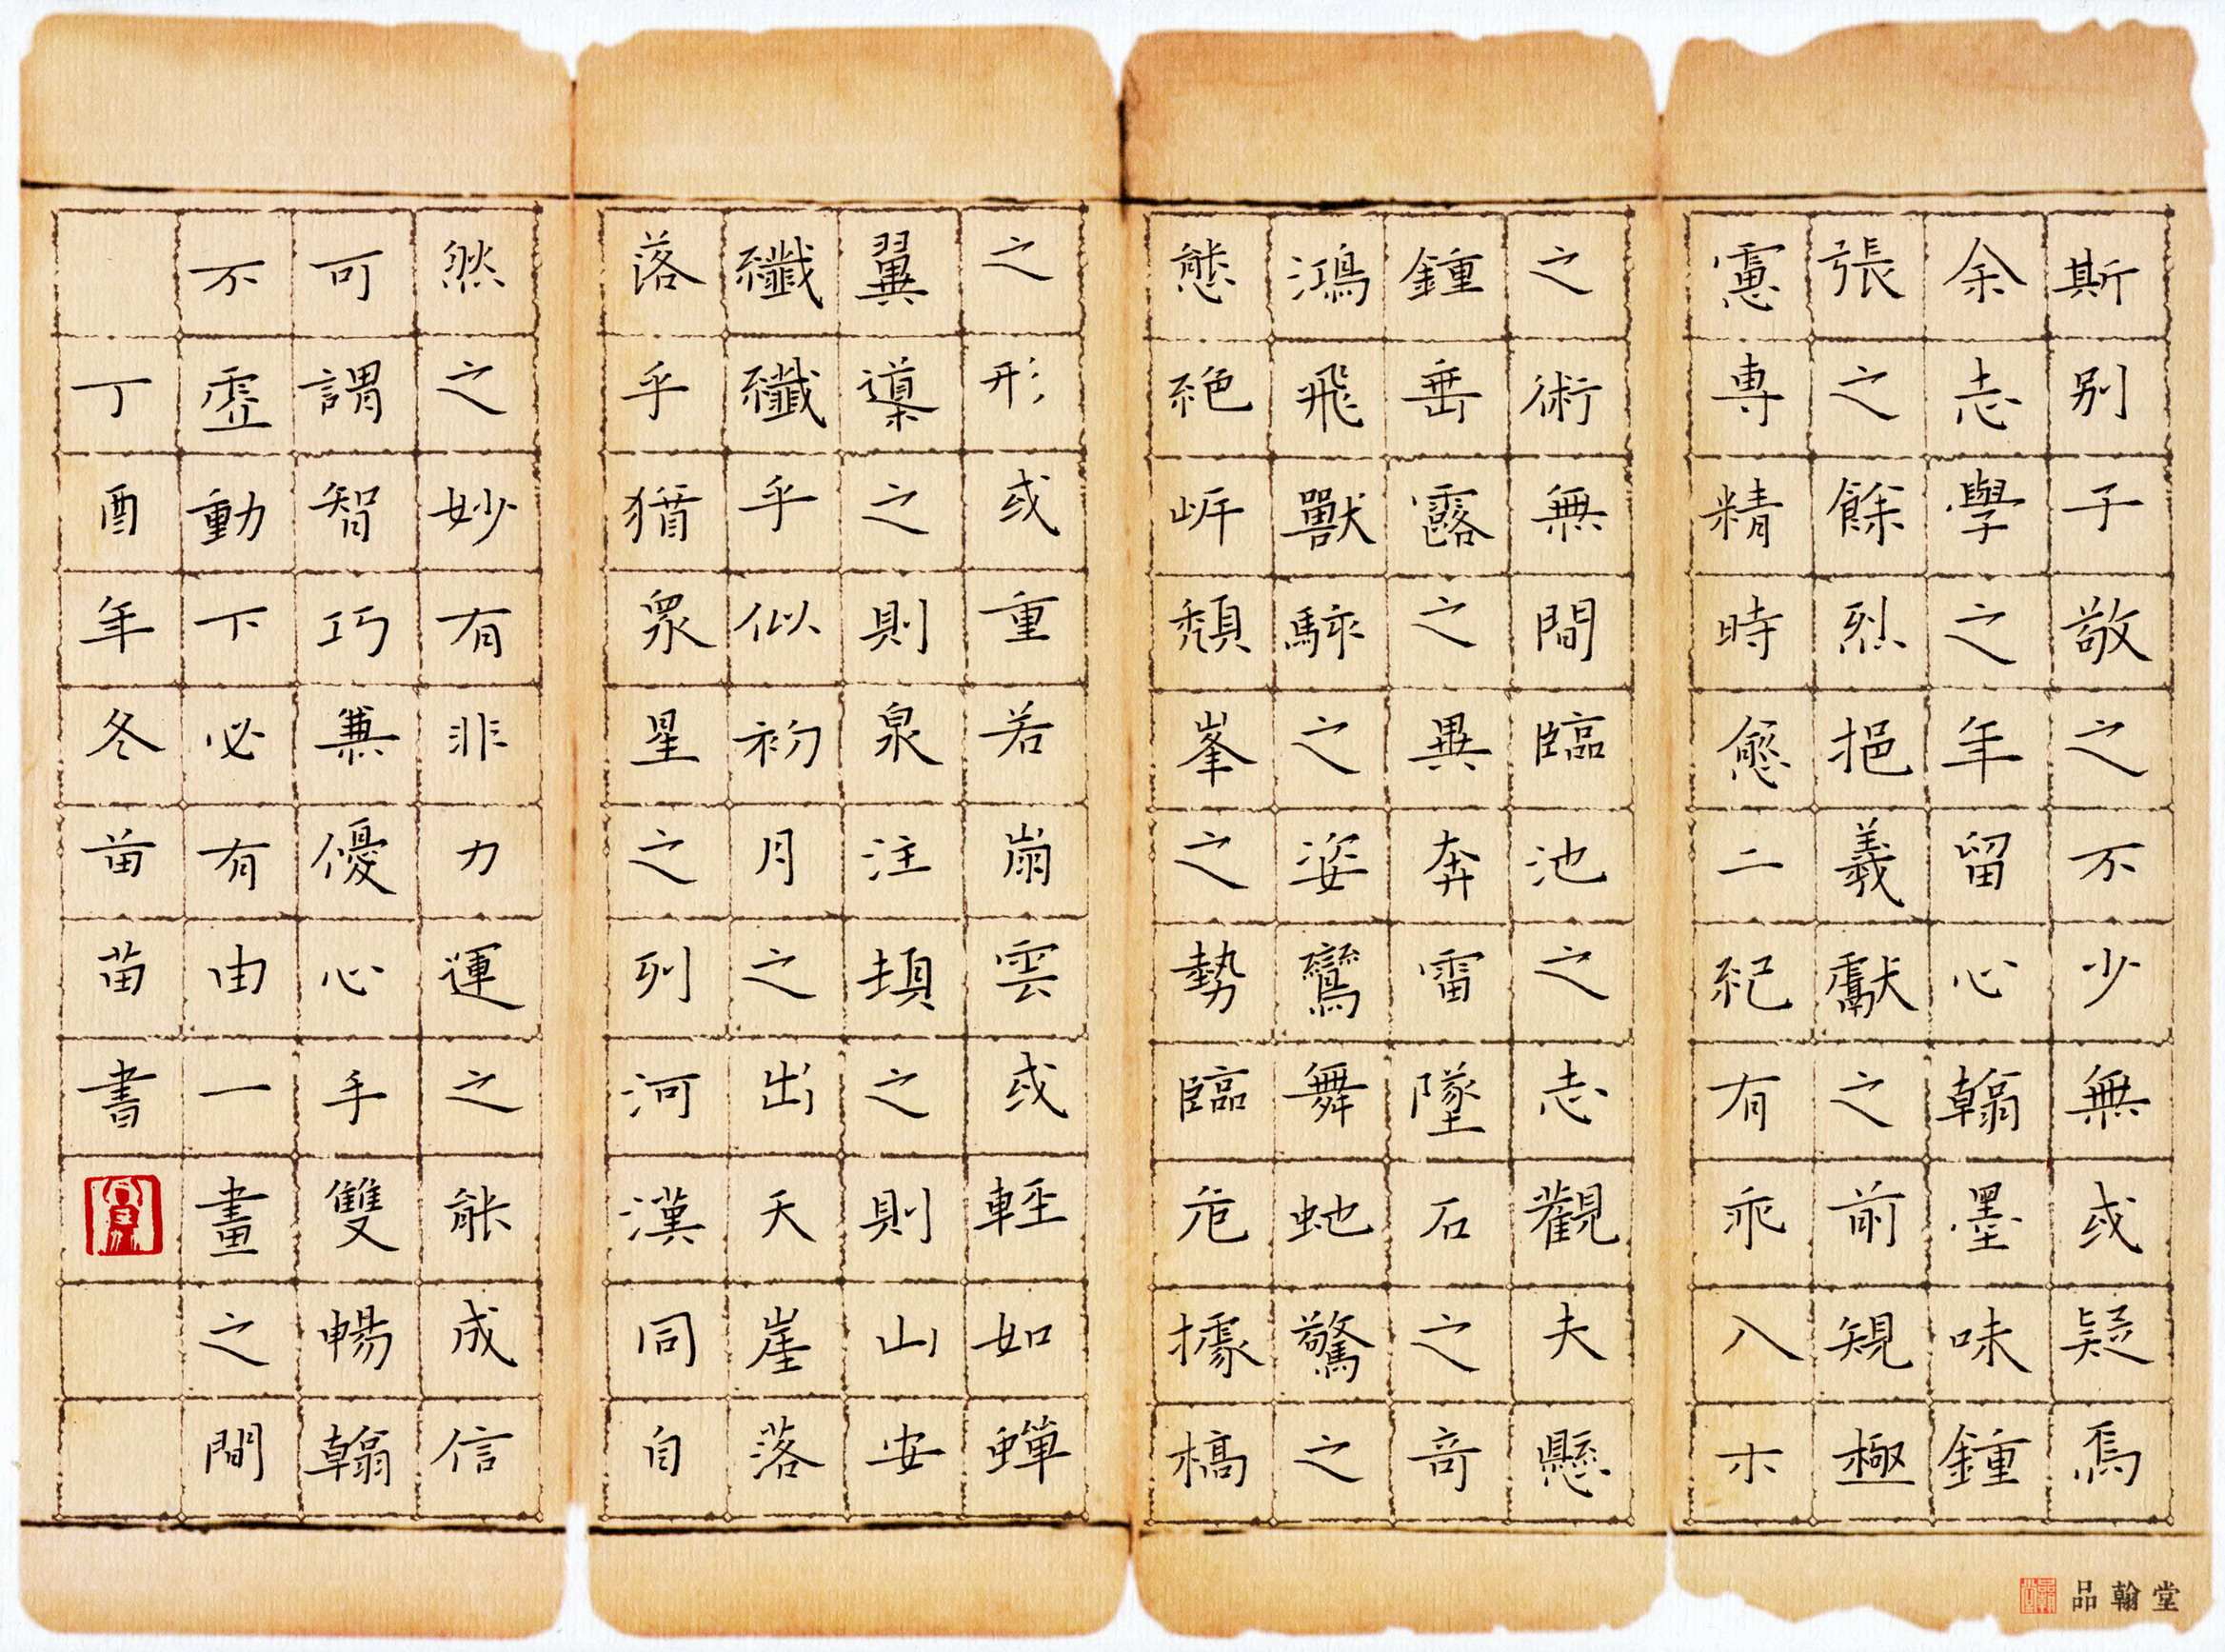 斯別子敬之不少無或疑焉
余志學之年留心翰墨味鍾
張之餘烈挹羲獻之前規極
慮專精時愈二紀有乖入木
之術無間臨池之志觀夫懸
鍾垂露之異奔雷墜石之奇
鴻飛獸駭之姿鸞舞蛇驚之
態絕岸頹峯之勢臨危據槁
之形或重若崩雲或輕如蟬
翼導之則泉注頓之則山安
纖纖乎似初月之出天崖落
落乎猶眾星之列河漢同自
然之妙有非力運之能成信
可謂智巧兼優心手雙暢翰
不虛動下必有由一畫之間
丁酉年冬苗苗書
品翰堂